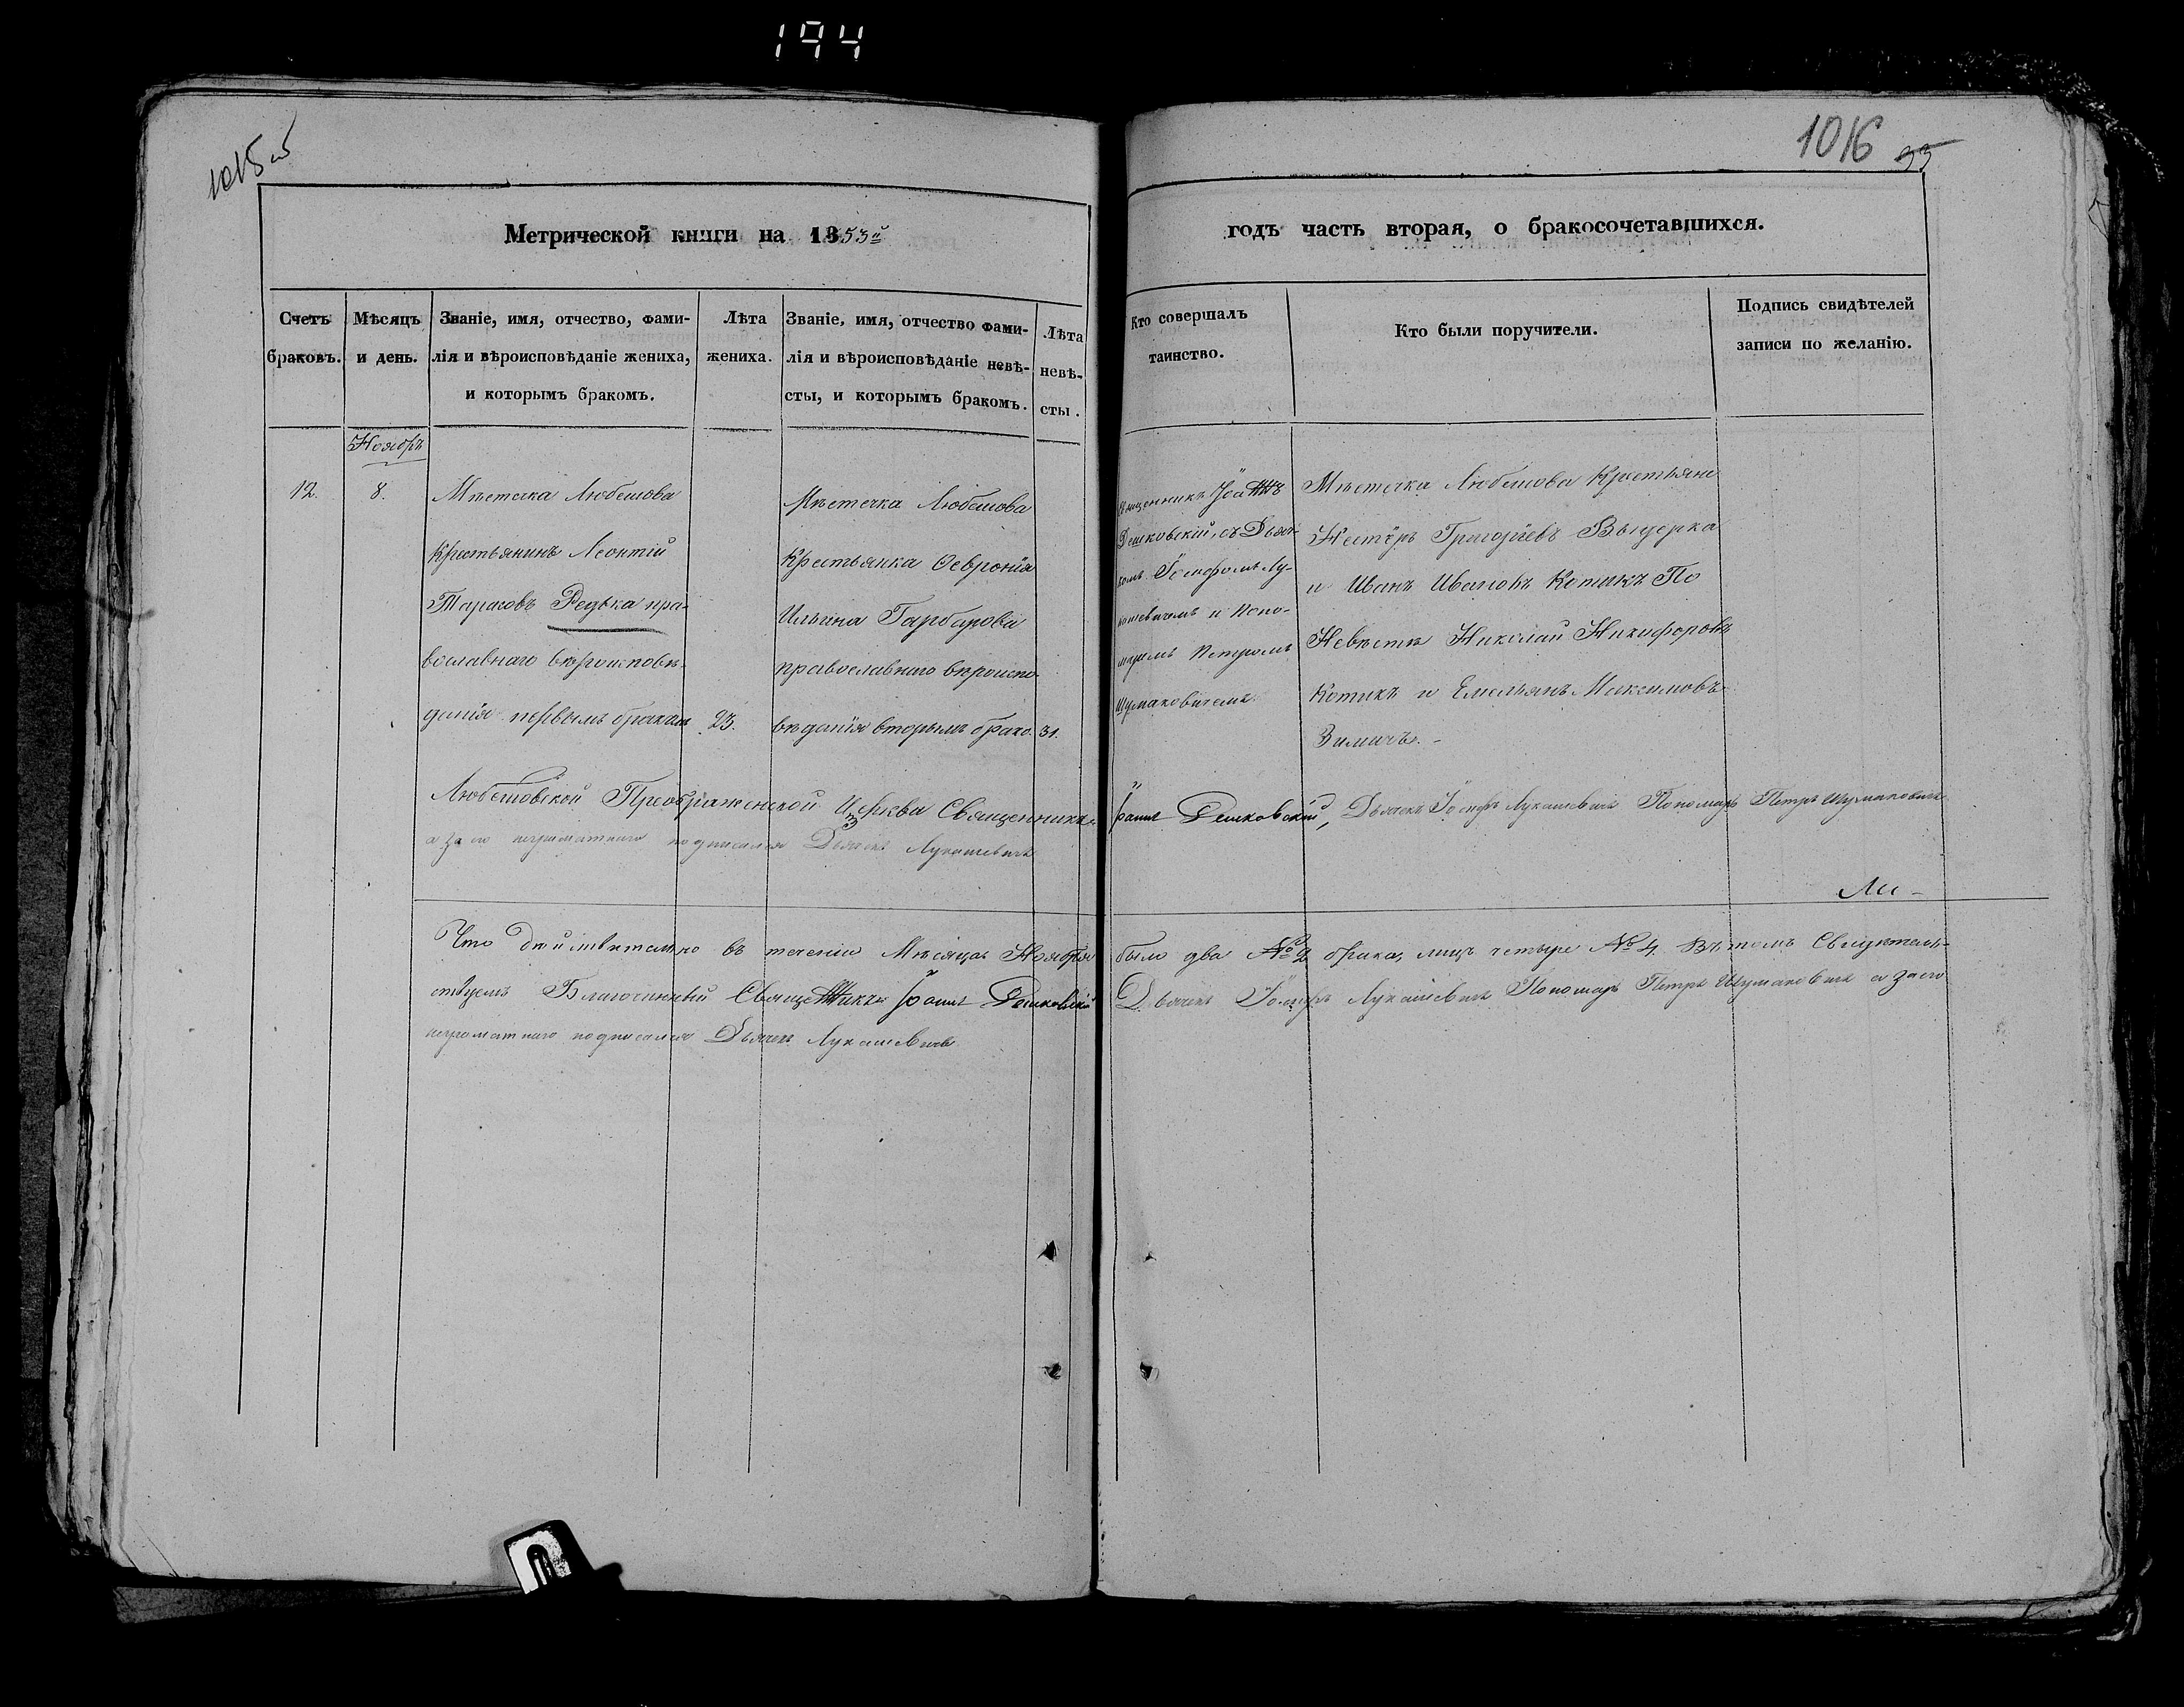 194
1015 об
1016 33
Метрической книги на 1853й
годъ часть вторая, о бракосочетавшихся.
Счетъ браковъ.
Мѣсяцъ и день.
Званіе, имя, отчество, фами-
лія и вѣроисповѣданіе жениха,
и которымъ бракомъ.
Лѣта
жениха.
Званіе, имя, отчество фами-
лія и вѣроисповѣданіе невѣ-
сты, и которымъ бракомъ.
Лѣта
невѣ-
сты.
Кто совершалъ
таинство.
Кто были поручители.
Подпись свидѣтелей
записи по желанію.
Ноябрь
12.
8.
Мѣстечка Любешова
Крестьянинъ Леонтій
Тарасовъ Редька пра-
вославнаго вѣроисповѣ-
данія первымъ бракомъ
23.
Мѣстечка Любешова
Крестьянка Февронія
Ильина Гарбарова
православнаго вѣроиспо-
вѣданія вторымъ брако
31.
Священникъ Іоаннъ
Решковскій, съ Дьяч-
комъ Іосифомъ Лу-
кошевичемъ и Поно-
маремъ Петромъ
Шумаковичемъ.
Мѣстечка Любешова Крестьяне
Несторъ Григоріевъ
и Иванъ Ивановъ Котикъ По
Невѣстѣ Николай Никифоровъ
Котикъ и Емельянъ Максимовъ
Зимичъ. -
Любешовской Преображенской Церкви Священникъ Іоаннъ Решковскій, Дьячекъ Іосифъ Лукашевичъ Пономарь Петръ Шумаковичъ
а за его неграматнаго подписался Дьячекъ Лукашевичъ
Ли-
Что дѣйствительно въ теченіи Мѣсяца Ноября было два № 2 брака, лицъ четыре № 4. Въ томъ Свидѣтель-
ствуемъ Благочинный Священникъ Іоаннъ Решковскій Дьячекъ Іосифъ Лукашевичъ Пономарь Петръ Шумаковичъ а за его
неграматнаго подписался Дьячекъ Лукашевичъ